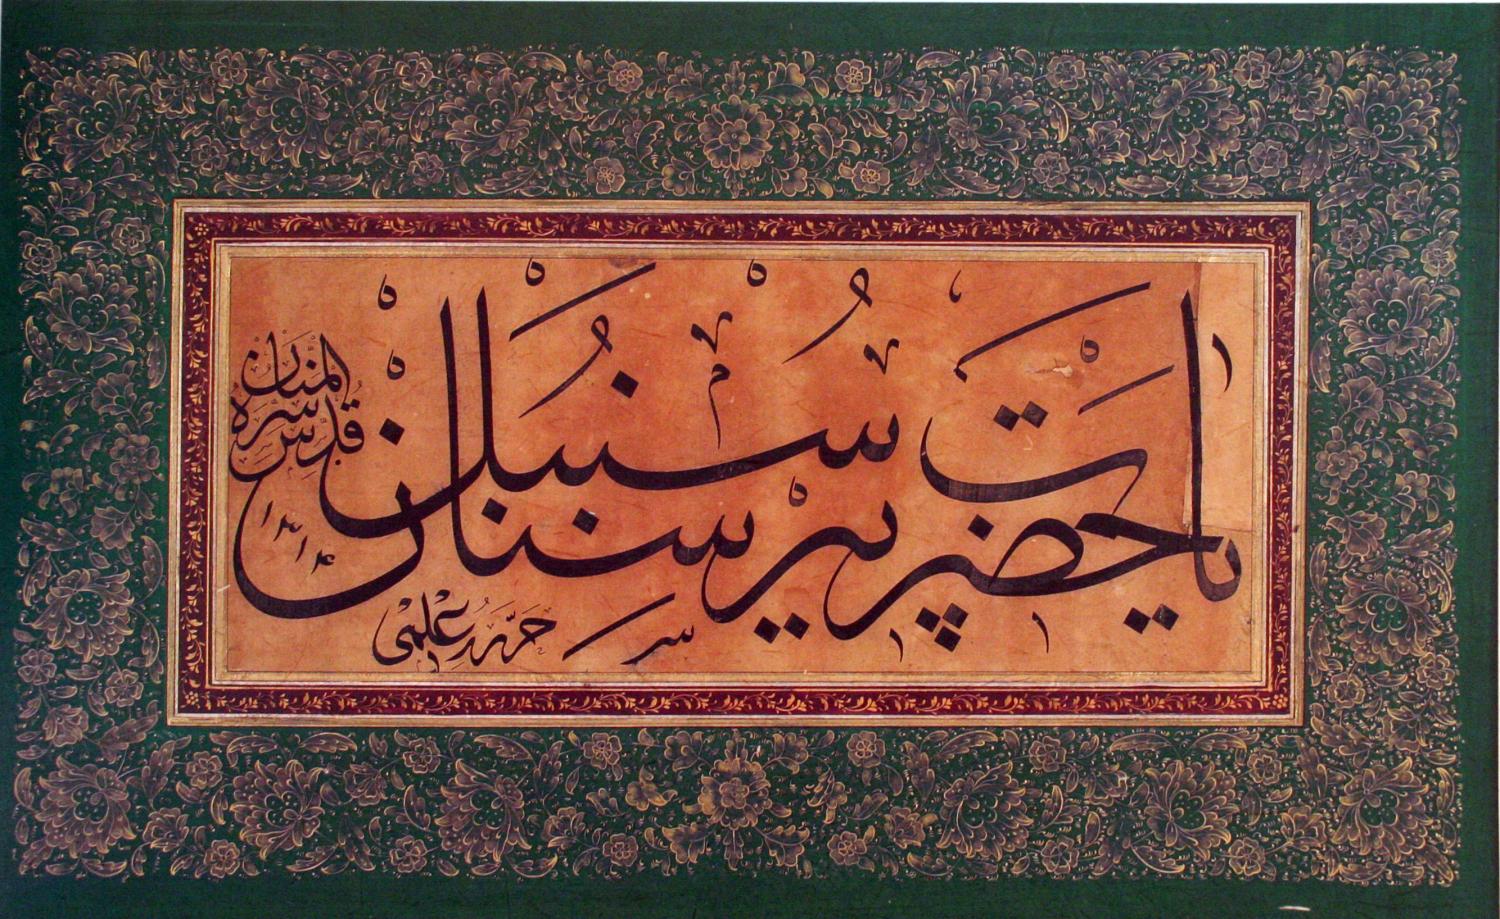 يا حضرت پير سنبل سنان
قدس سره المنان
حرره علمى
١٣١٤